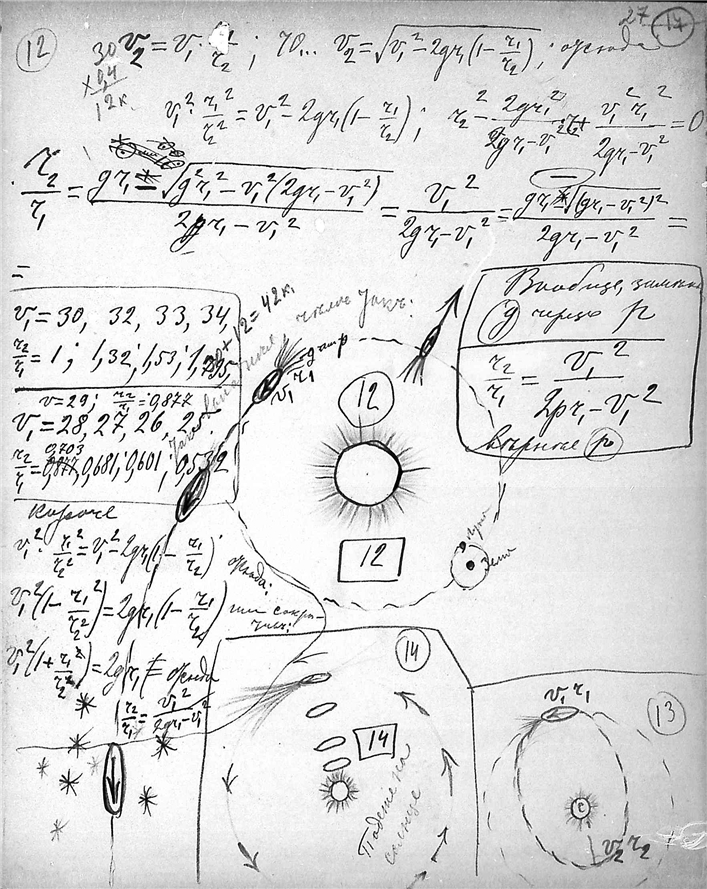 12
27 14
30
×0,4
12к.
v₂ = v₁ · r₁/r₂ ; но... v₂ = √(v₁² − 2gr₁(1 − r₁/r₂)) ; откуда
v₁² · r₁²/r₂² = v₁² − 2gr₁(1 − r₁/r₂) ; r₂² − 2gr₁²/(2gr₁ − v₁²) r₂ + v₁² r₁²/(2gr₁ − v₁²) = 0
r₂/r₁ = (gr₁ ± √(g²r₁² − v₁²(2gr₁ − v₁²)))/(2gr₁ − v₁²) = v₁²/(2gr₁ − v₁²) = (gr₁ − √(gr₁ − v₁²)²)/(2gr₁ − v₁²) =
=
v₁ = 30, 32, 33, 34,
r₂/r₁ = 1; 1,32; 1,53;
v = 29; r₂/r₁ = 0,877
v₁ = 28, 27, 26, 2
0,703
r₂/r₁ = 0,877, 0,681; 0,601; 0,532
короче
v₁² · r₁²/r₂² = v₁² − 2gr₁(1 − r₁/r₂)
откуда:
v₁²(1 − r₁²/r₂²) = 2gr₁(1 − r₁/r₂) или сокра-
тись:
v₁²(1 + r₁/r₂) = 2gr₁ откуда
r₂/r₁ = v₁²/(2gr₁ − v₁²)
30+12=42к.
v₁ r₁
12
12
Луна
Земля
Вообще, заменяя
g через p
r₂/r₁ = v₁²/(2pr₁ − v₁²)
вернее p
14
14
Падение на
солнце
13
v₁ r₁
C
v₂ r₂